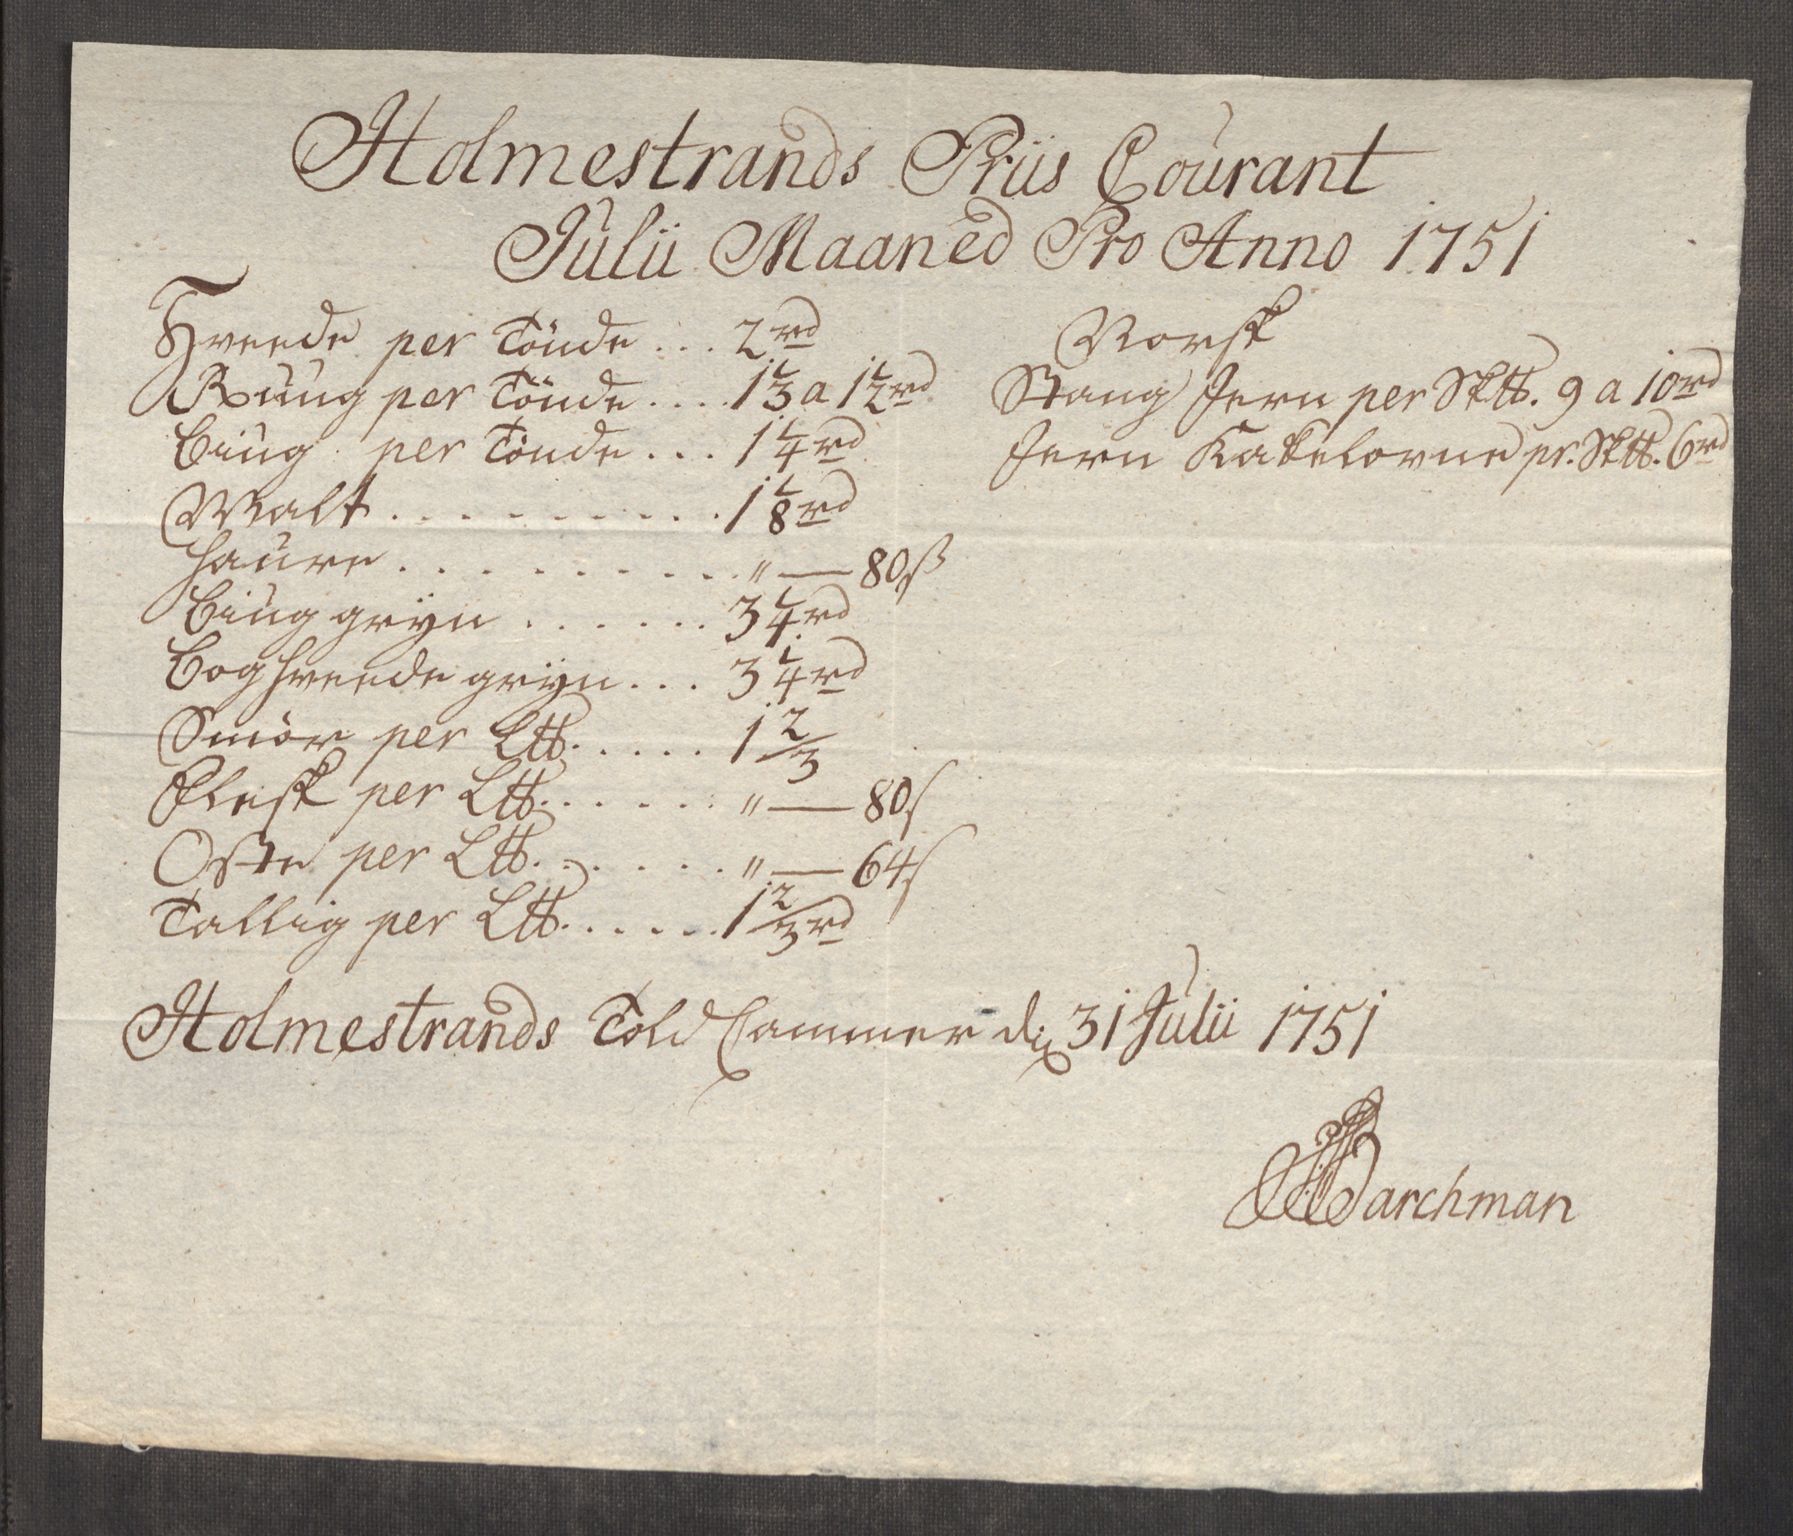 Holmestrands Priis Courant
Julii Maaned Pro Anno 1751
Hveede per Tönde ... 2 rd
Ruug per Tönde .... 1 1/3 a 1 1/2 rd
Biug per Tönde ... 1 1/4 rd
Malt .......... 1 1/8 rd
Haure .......... " — 80 ß
Biug gryn ...... 3 1/4 rd
Boghveede gryn ... 3 1/4 rd
Smör per L℔ ..... 1 2/3
Flesk per L℔ ...... " — 80 ß
Oste per L℔ ....... " — 64 ß
Tallig per L℔ ...... 1 2/3 rd
Norsk
Stang Jern per Sk℔. 9 a 10 rd
Jern Kakelovne pr. Sk℔. 6 rd
Holmestrands Told Cammer d: 31 Julii 1751
Barchman